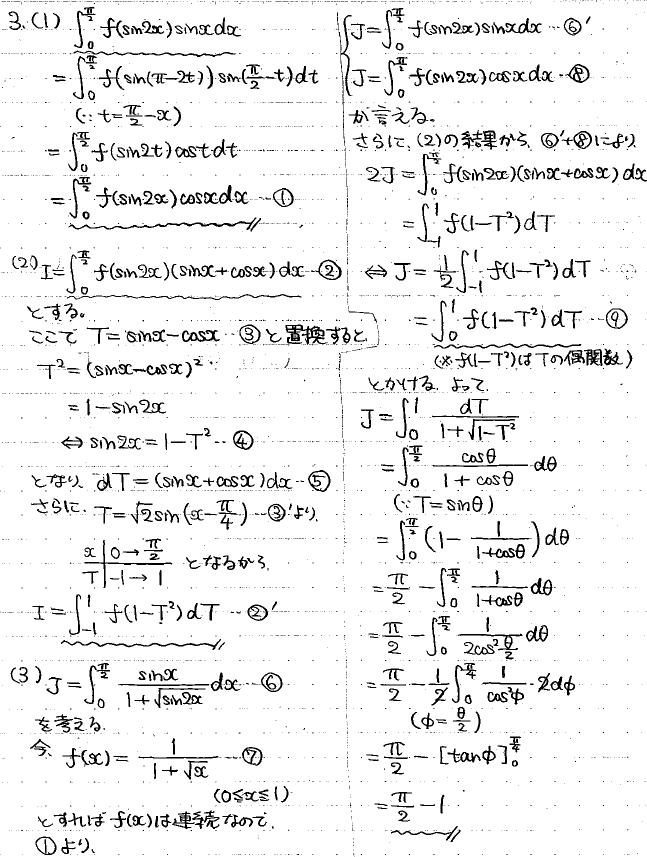 3.(1) ∫₀^{π/2} f(sin2x)sinxdx
= ∫₀^{π/2} f(sin(π-2t))sin(π/2-t)dt
(∵ t=π/2-x)
= ∫₀^{π/2} f(sin2t)costdt
= ∫₀^{π/2} f(sin2x)cosxdx …①
(2) I=∫₀^{π/2} f(sin2x)(sinx+cosx)dx …②
とする。
ここで T=sinx-cosx …③ と置換すると
T²=(sinx-cosx)²
=1-sin2x
⇔ sin2x=1-T² …④
となり、dT=(sinx+cosx)dx …⑤
さらに、T=√2sin(x-π/4) …③'より、
x | 0→π/2
T | -1→1 となるから
I=∫₋₁^1 f(1-T²)dT …②'
(3) J=∫₀^{π/2} sinx/(1+√sin2x) dx …⑥
を考える。
今、f(x)=1/(1+√x) …⑦
(0≦x≦1)
とすれば f(x)は連続なので、
①より、
J=∫₀^{π/2} f(sin2x)sinxdx …⑥'
J=∫₀^{π/2} f(sin2x)cosxdx …⑧
が言える。
さらに、(2)の結果から、⑥'+⑧により
2J=∫₀^{π/2} f(sin2x)(sinx+cosx)dx
=∫₋₁^1 f(1-T²)dT
⇔ J=1/2∫₋₁^1 f(1-T²)dT
=∫₀^1 f(1-T²)dT …⑨
(※f(1-T²)はTの偶関数)
とかける。よって
J=∫₀^1 dT/(1+√(1-T²))
=∫₀^{π/2} cosθ/(1+cosθ) dθ
(∵T=sinθ)
=∫₀^{π/2} (1-1/(1+cosθ))dθ
=π/2-∫₀^{π/2} 1/(1+cosθ) dθ
=π/2-∫₀^{π/2} 1/(2cos²θ/2) dθ
=π/2-1/2∫₀^{π/4} 1/cos²φ・2dφ
(φ=θ/2)
=π/2-[tanφ]₀^{π/4}
=π/2-1